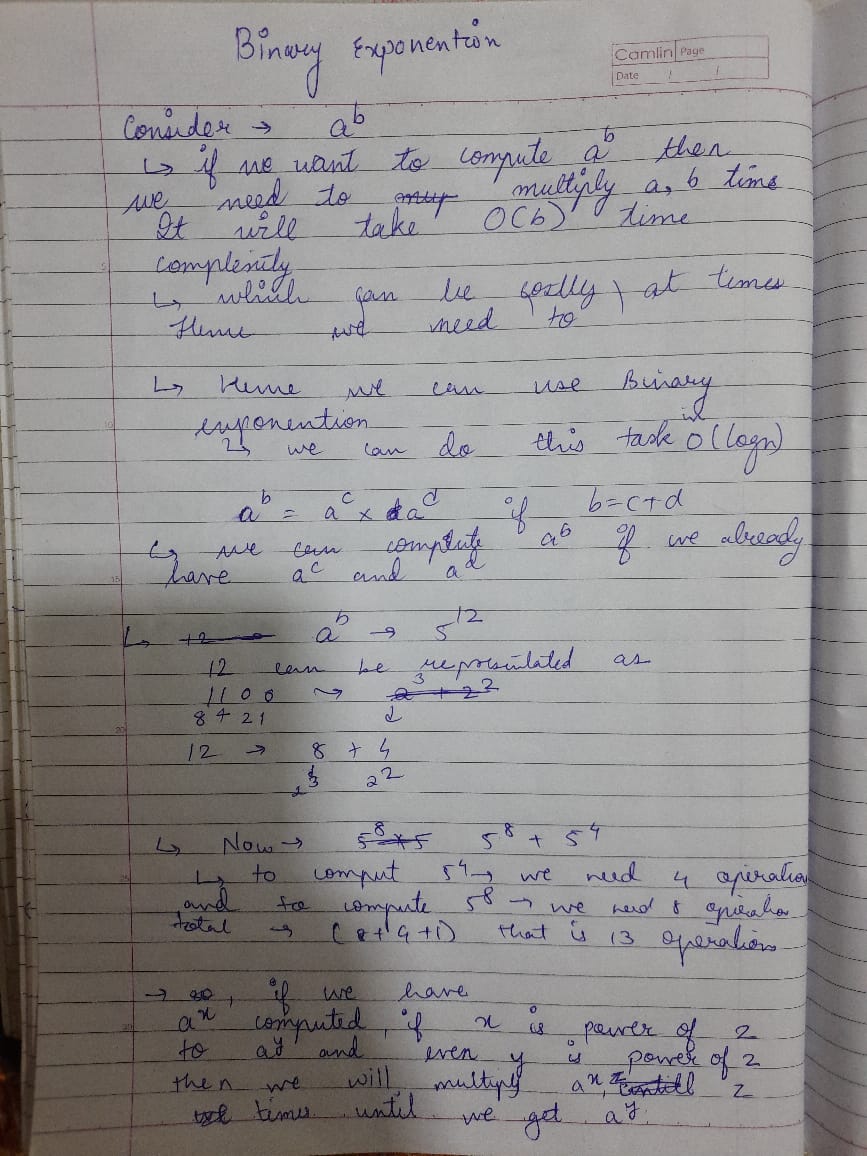 Binary Exponention
Camlin Page
Date / /
Consider → a^b
↳ if we want to compute a^b then
we need to multiply a, b time
It will take O(b) time
complexity
↳ which can be costly at times
Hence we need to
↳ Hence we can use Binary
exponention
↳ we can do this task in O(logn)
a^b = a^c × a^d if b=c+d
↳ we can compute a^b if we already
have a^c and a^d
↳ a^b → 5^12
12 can be represented as
1100 → 2^3 + 2^2
8 4 2 1 ↓
12 → 8 + 4
2^3 2^2
↳ Now → 5^8 × 5 5^8 + 5^4
↳ to comput 5^4 → we need 4 operation
and to compute 5^8 → we need 8 operation
total → (8+4+1) that is 13 operation
→ so, if we have
a^x computed, if x is power of 2
to a^y and even y is power of 2
then we will multiply a^x, 2
times until we get a^y.